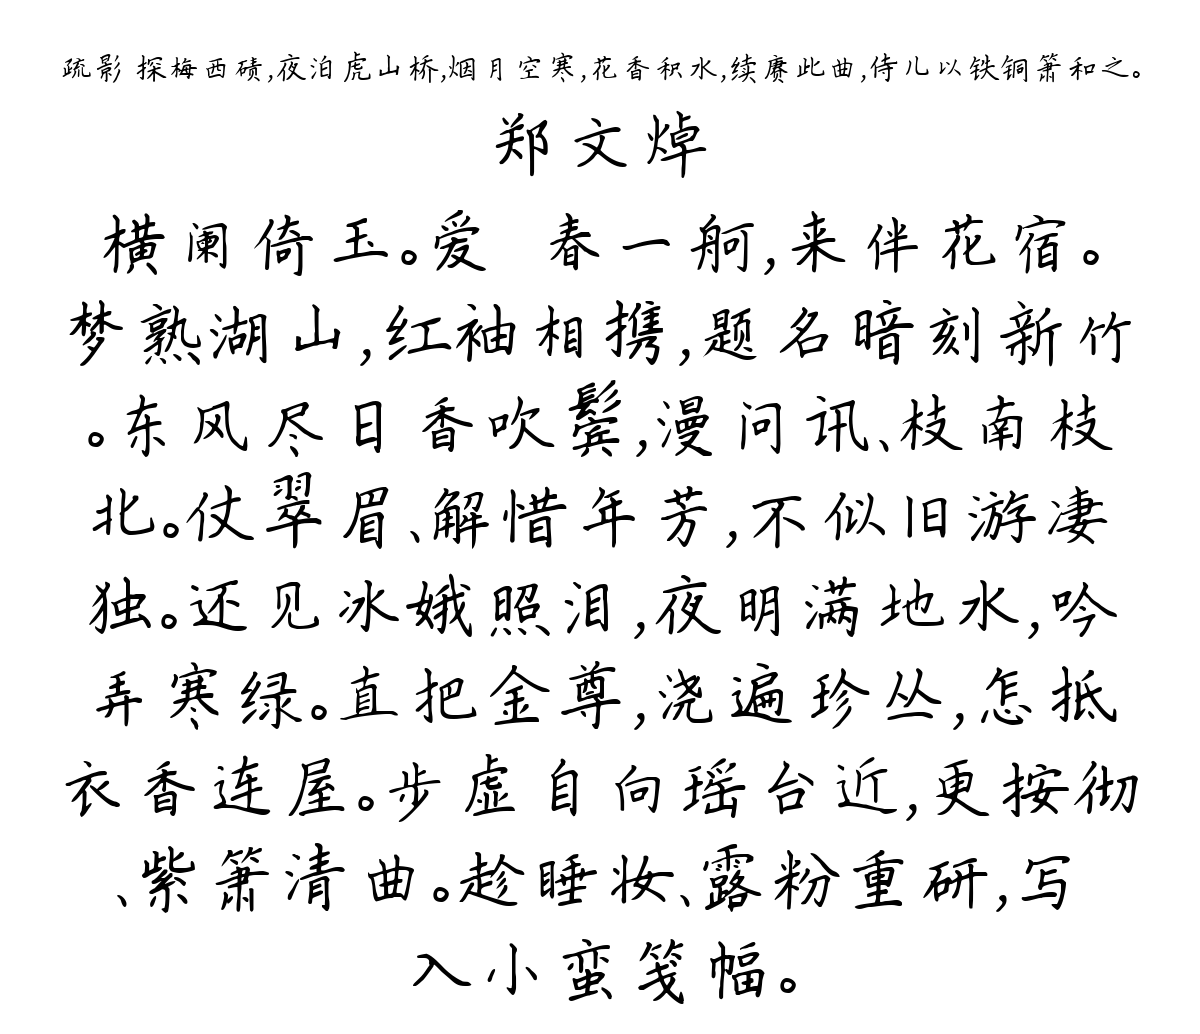 疏影 探梅西碛,夜泊虎山桥,烟月空寒,花香积水,续赓此曲,侍儿以铁铜箫和之。
郑文焯
横阑倚玉。爱 春一舸,来伴花宿。
梦熟湖山,红袖相携,题名暗刻新竹
。东风尽日香吹鬓,漫问讯、枝南枝
北。仗翠眉、解惜年芳,不似旧游凄
独。还见冰娥照泪,夜明满地水,吟
弄寒绿。直把金尊,浇遍珍丛,怎抵
衣香连屋。步虚自向瑶台近,更按彻
、紫箫清曲。趁睡妆、露粉重研,写
入小蛮笺幅。